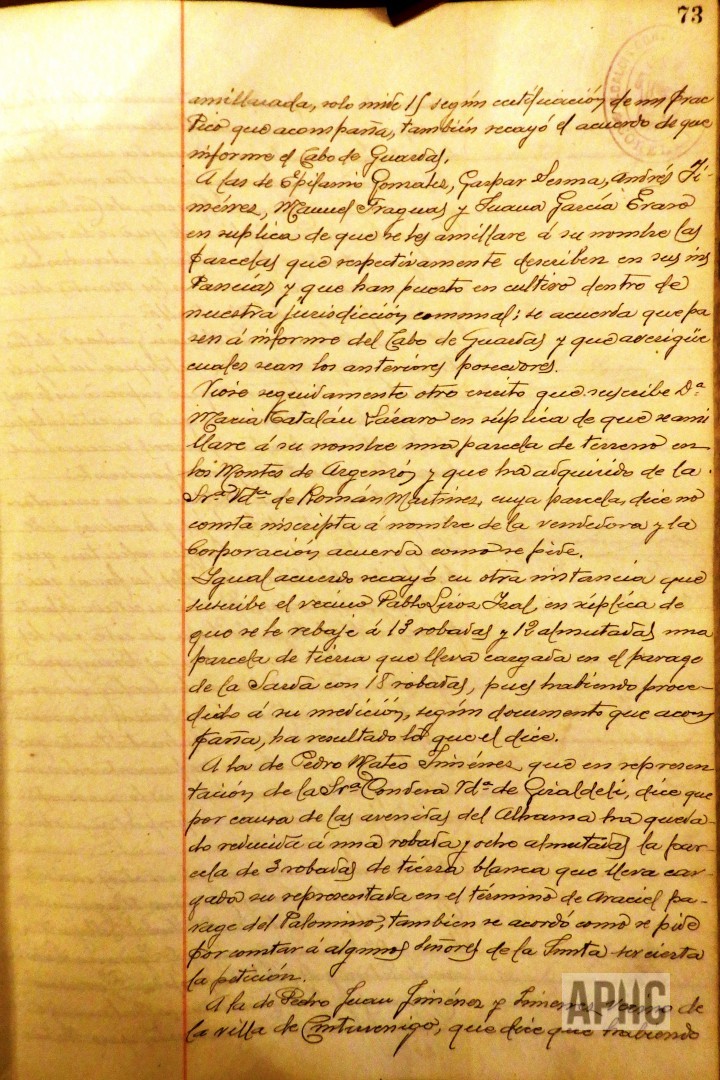 73
amillarada, solo mide 15 según certificación de un prac
tico que acompaña, también recayó el acuerdo de que
informe el Cabo de Guardas.
A las de Epifanio González, Gaspar Serma, Andrés Ji-
ménez, Manuel Fraguas y Juana García Eraso
en súplica de que se les amillare á su nombre las
parcelas que respectivamente describen en sus ins
tancias y que han puesto en cultivo dentro de
nuestra jurisdicción comunal; se acuerda que pa
sen á informe del Cabo de Guardas y que averigüe
cuales sean los anteriores poseedores.
Viose seguidamente otro escrito que suscribe Dª
Maria Catalán Lázaro en súplica de que se ami
llare á su nombre una parcela de terreno en
los Montes de Argenzón y que ha adquirido de la
Srª Vdª de Román Martinez, cuya parcela, dice no
consta inscripta á nombre de la vendedora y la
Corporación acuerda como se pide.
Igual acuerdo recayó en otra instancia que
suscribe el vecino Pablo Liros Isal, en súplica de
que se le rebaje á 13 robadas y 12 almutadas una
parcela de tierra que lleva cargada en el parage
de la Sarda con 18 robadas, pues habiendo proce-
dido á su medición, según documento que acom
paña, ha resultado lo que el dice.
A la de Pedro Mateo Jiménez que en represen
tación de la Srª Condesa Vdª de Giraldeli, dice que
por causa de las avenidas del Alhama ha queda-
do reducida á una robada y ocho almutadas la par-
cela de 3 robadas de tierra blanca que lleva car-
gada su representada en el término de Araciel pa-
rage del Palomino, tambien se acordó como se pide
por constar á algunos Señores de la Junta ser cierta
la petición.
A la de Pedro Juan Jiménez y Jimenez, vecino de
la villa de Cintruenigo, que dice que habiendo
APHC